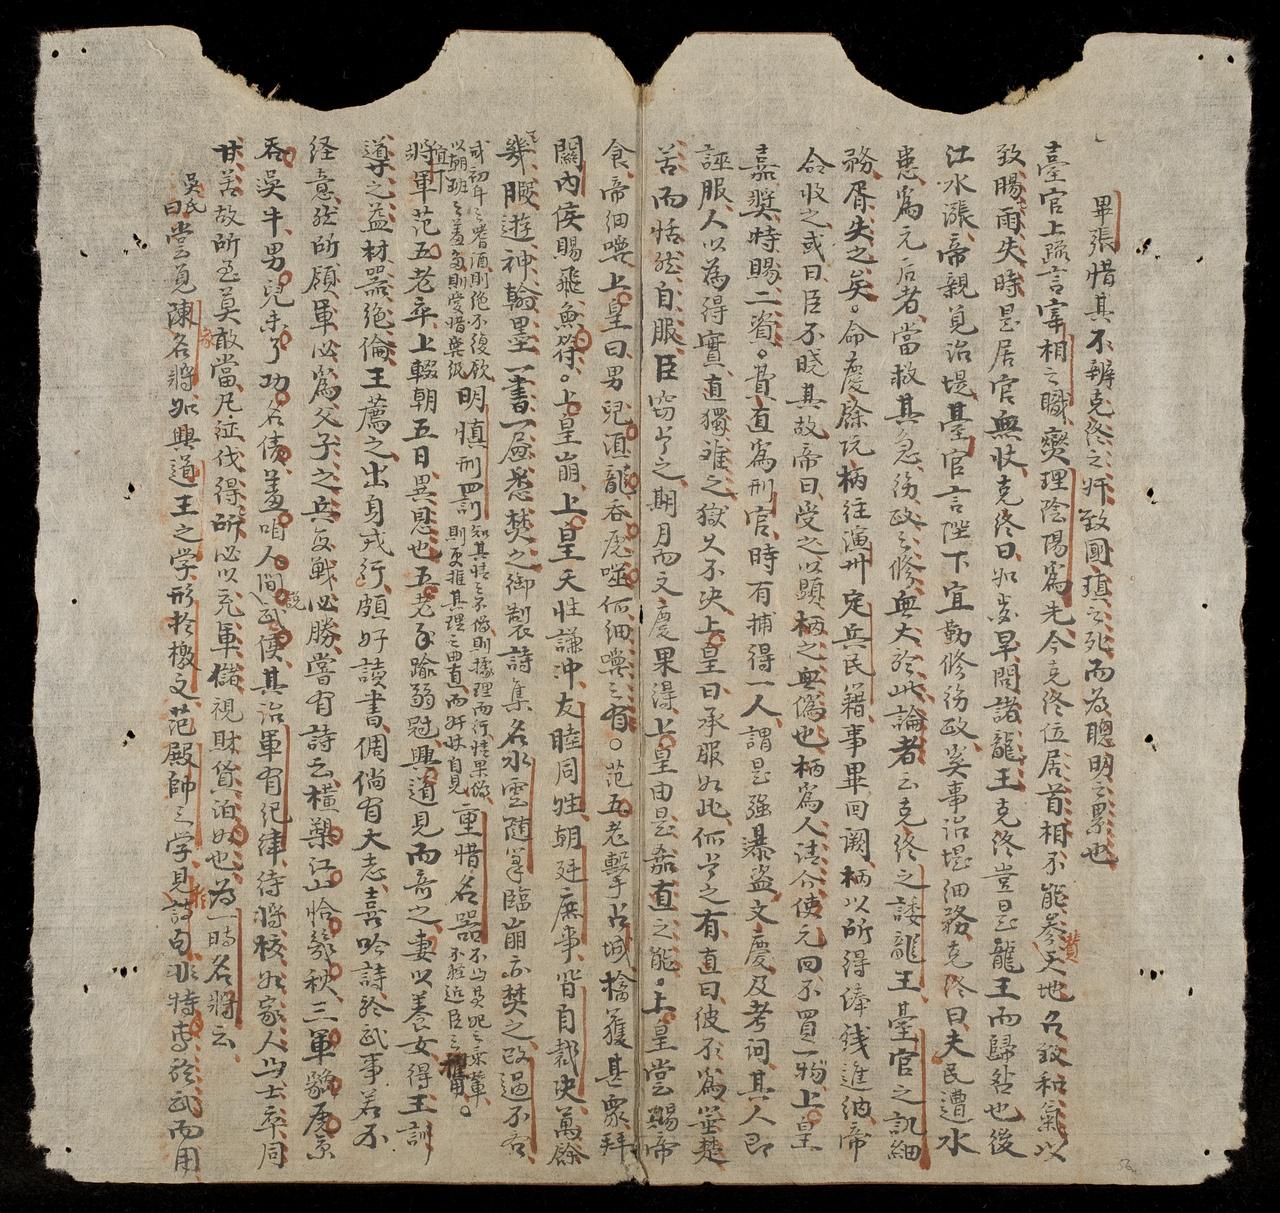 畢張惜其不辨克終之奸致國瑱之死而为聰明之累也
臺官上疏言宰相之職燮理陰陽為先今克終位居首相不能參贊天地召致和氣以
致賜雨失時是居官無狀克終曰如多旱問諸龍王克終豈是龍王而歸咎也後
江水漲帝親覓治堤臺官言陛下宜勤修務政矣事治堤細務克終曰夫民遭水
患為元后者當救其急務政之修無大於此論者云克終之諉龍王臺官之訊細
務胥失之矣命慶餘阮柄往演州定兵民籍事畢回闕柄以所得俸残進納帝
命收之或曰臣不曉其故帝曰受之以顕柄之無偽也柄為人清介使元回不買一物上皇
嘉獎特賜二資費直為刑官時有捕得一人謂是强暴盗文慶及考詞其人即
誣服人以為得實直獨难之獄久不決上皇曰承服如此何

之有直曰彼不為箠楚
苦而恬然自服臣窃

之期月而文慶果得上皇由是嘉直之能上皇嘗賜帝
食帝細嚥上皇曰男兒須龍吞虎噬何細嚥之有范五老擊占城搶獲其衆拜
關內侯賜飛魚符上皇崩上皇天性謙冲友睦同姓朝廷庶事皆自裁决萬餘
幾暇遊神翰墨一書一

悉焚之御製詩集名水雲随筆臨崩亦焚之改過不吝
或初年之嗜酒則絶不復飲
以朝班之

則受惜樂級
明慎刑罰
知其情之不偽則據理而行

果偽
則更推其理之曲直而奸狀自見
重惜名器
不與

之

輩
不輕近臣之擢用
將軍范五老卒上輟朝五日異恩也五老年踰弱冠興道見而奇之妻以養女得王訓
導之益材器絶倫王薦之出身戎行頗好讀書倜倘有大志喜吟詩於武事若不
经意然所領軍必為父子之兵每戰必勝嘗有詩云橫槊江山恰幾秋三軍貔虎氣
吞吳牛男兒未了功名債羞咱人間說武侯其治軍有紀律待將校如家人与士卒同
甘苦故所至莫敢當凡征伐得所必以充軍儲視財貨泊如也為一時名將云
吳氏曰嘗覓陳家名將如興道王之学形於檄文范殿帥之学見於詩句非特專於武而用